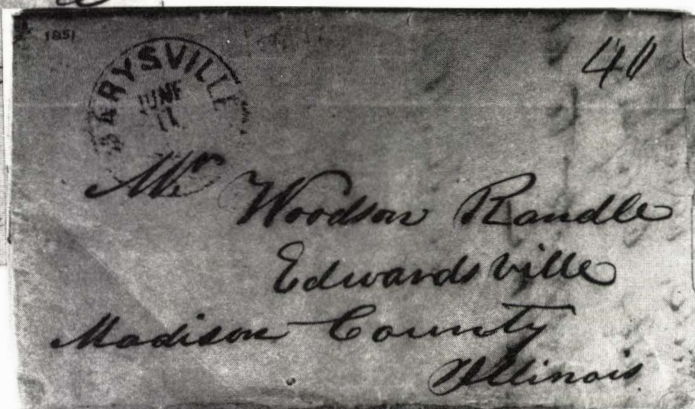 1851
MARYSVILLE
JUNE
11
40
Mr Woodson Randle
Edwardsville
Madison County
Illinois